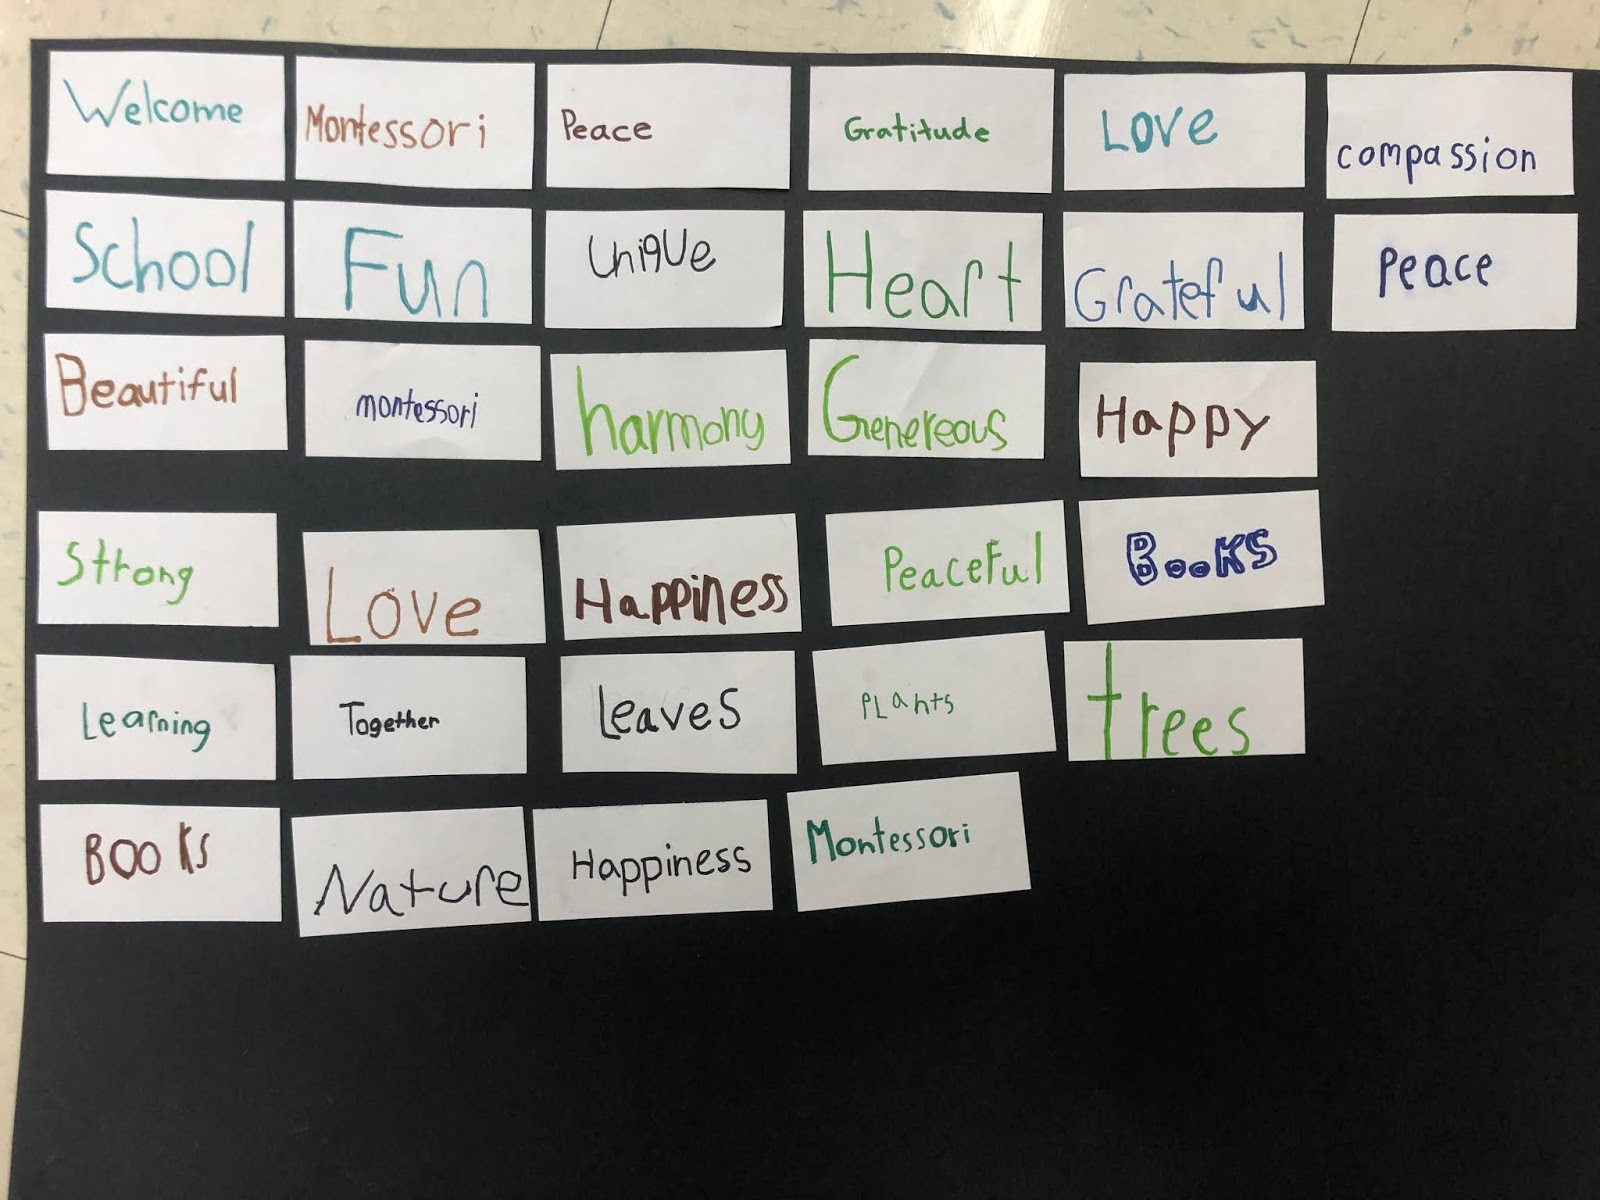 Welcome Montessori Peace Gratitude Love compassion
School Fun Unique Heart Grateful Peace
Beautiful montessori harmony Genereous Happy
Strong Love Happiness Peaceful Books
Learning Together Leaves PLants trees
Books Nature Happiness Montessori